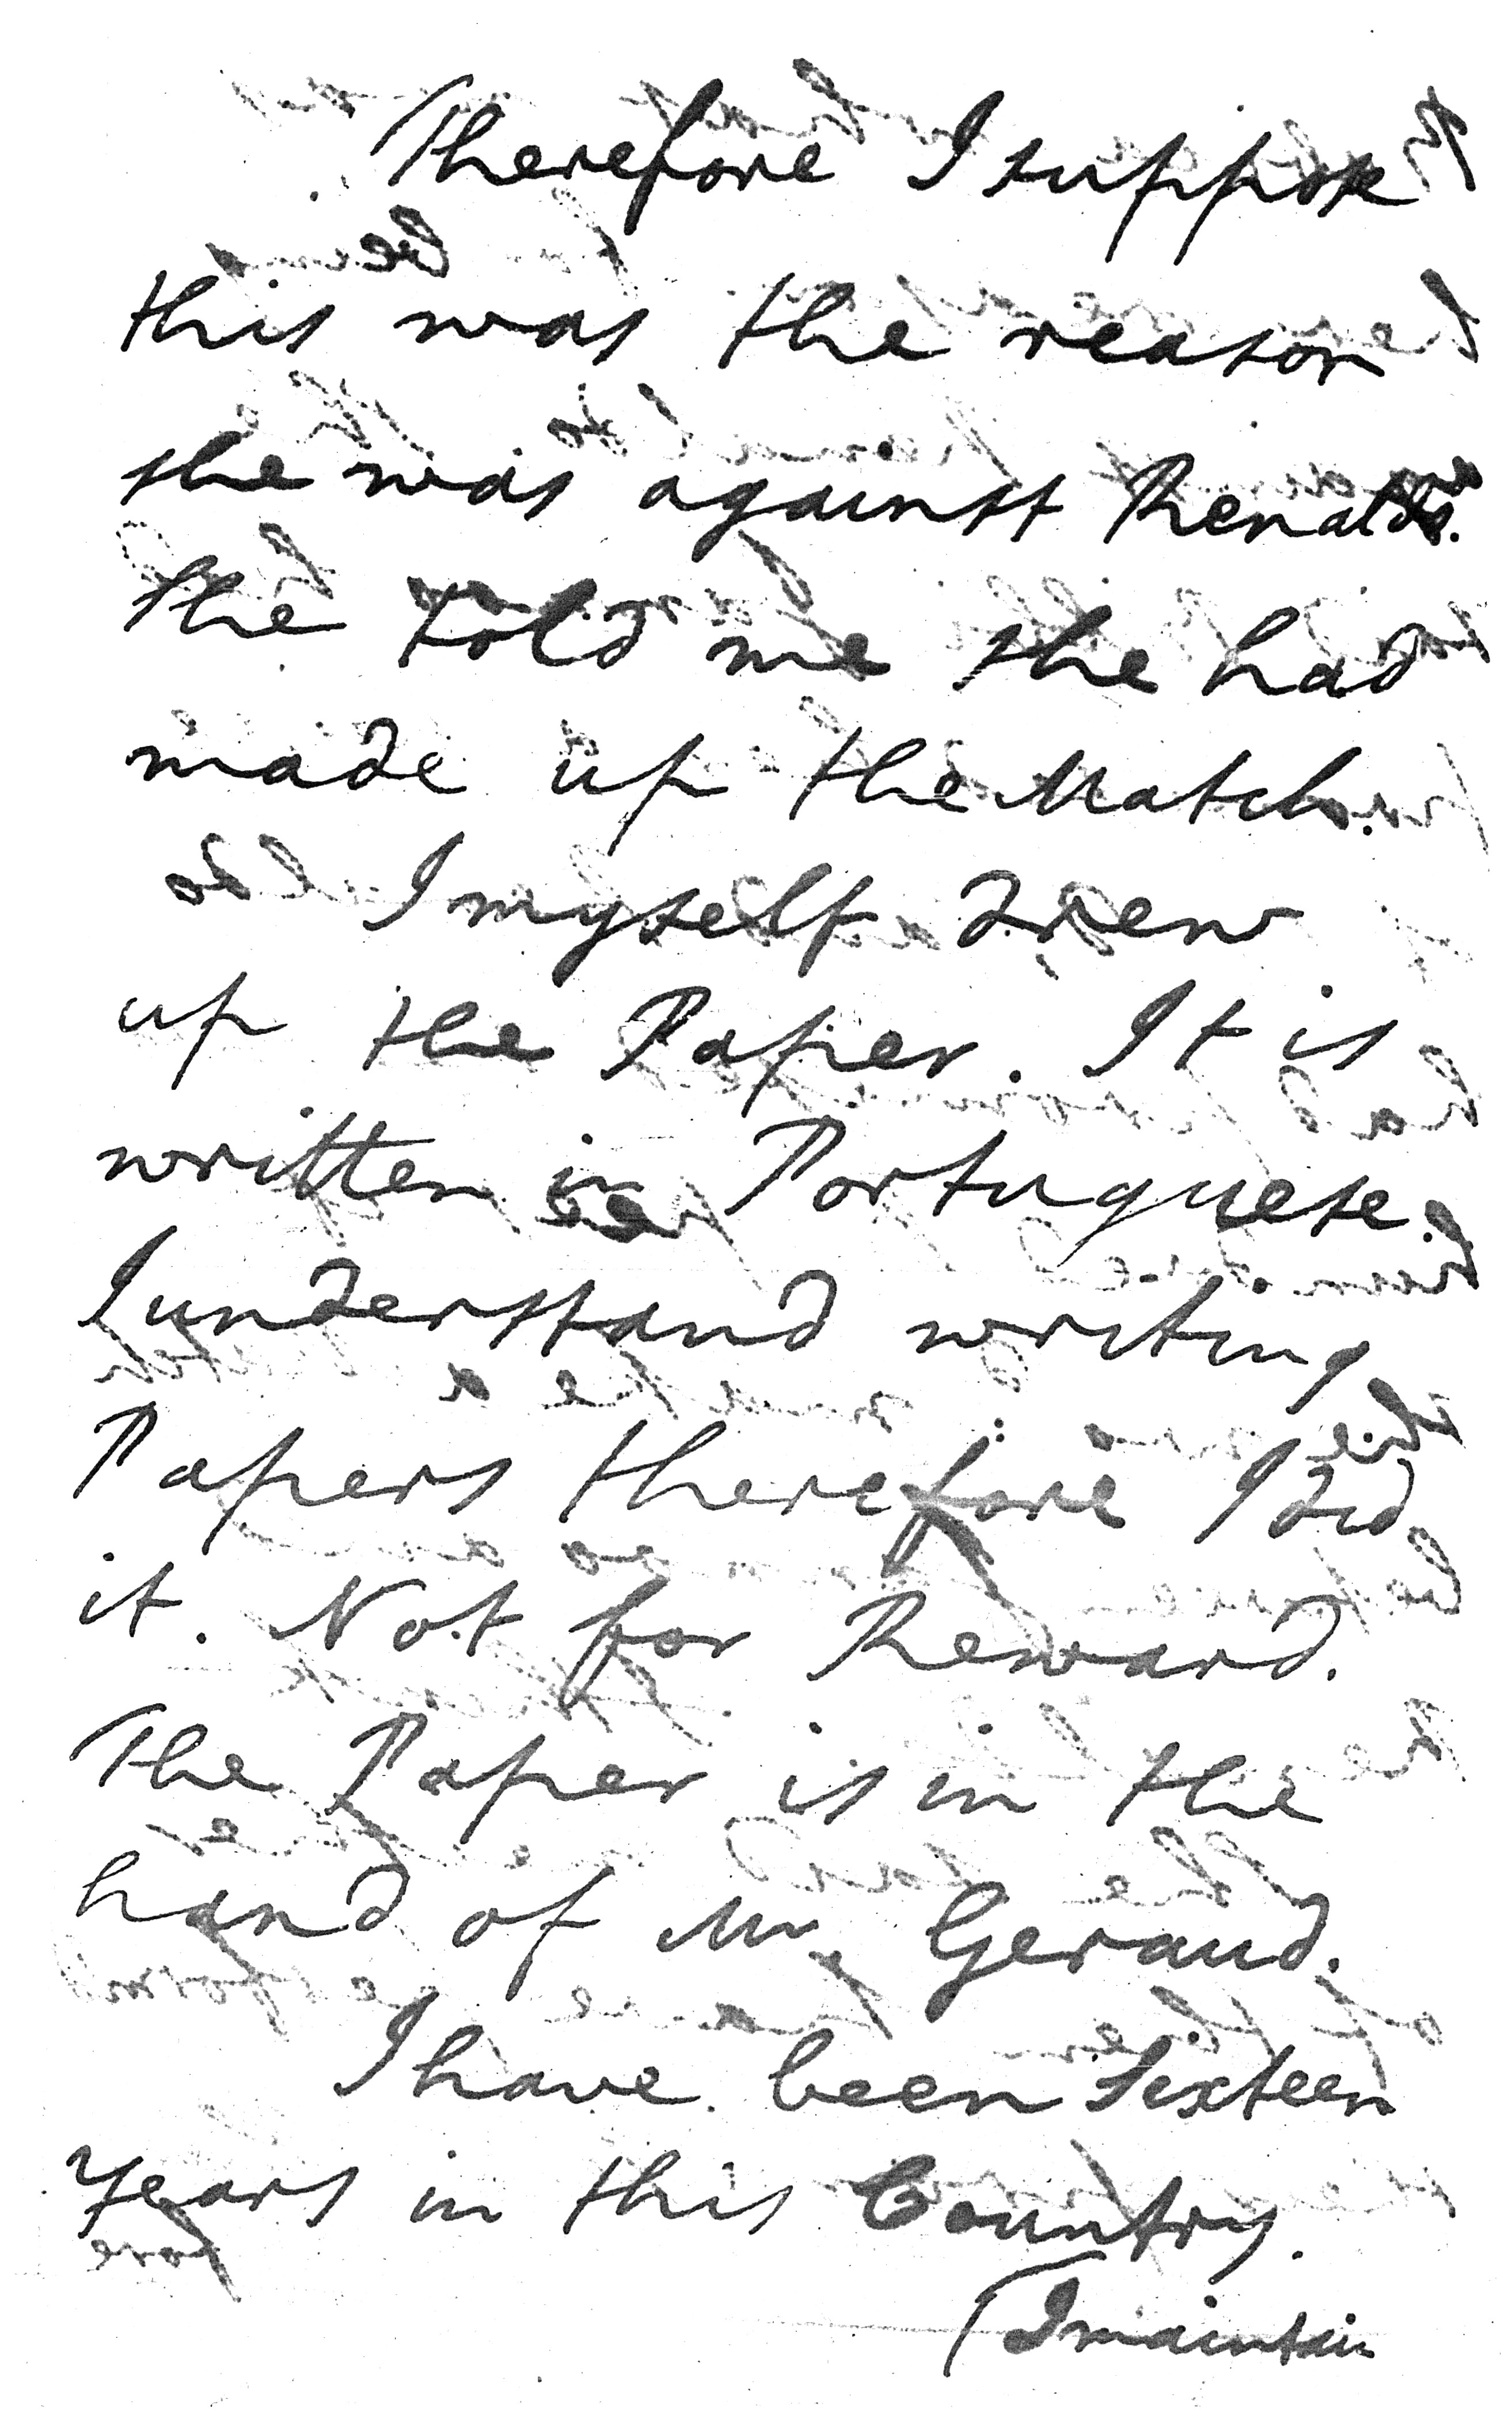 Therefore I suppose
this was the reason
she was against Renaldo.
She told me she had
made up the Match.
I myself drew
up the Paper. It is
written in Portuguese.
I understand writing
Papers therefore I did
it. Not for Reward.
The Paper is in the
hand of Mr Geraud.
I have been Sixteen
Years in this Country.
(I maintain